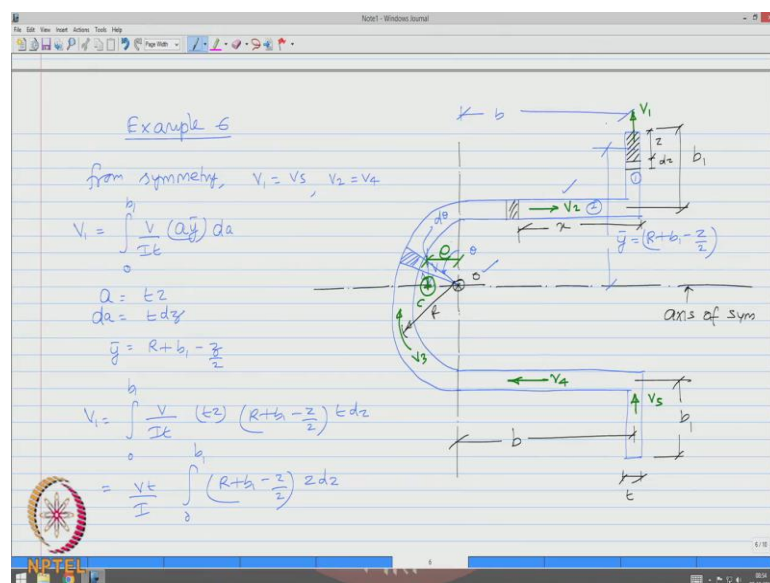 Note1 - Windows Journal
File Edit View Insert Actions Tools Help
Page Width
Example 6
from symmetry, V1 = V5, V2 = V4
V1 = ∫₀^b1 V/It (aȳ) da
a = tz
da = t dz
ȳ = R + b1 - z/2
V1 = ∫₀^b1 V/It (tz) (R+b1 - z/2) t dz
= Vt/I ∫₀^b1 (R+b1 - z/2) z dz
b
V1
z
dz
b1
1
V2 2
x
ȳ = (R+b1 - z/2)
dθ
θ
e
O
C
R
axis of sym
V3
V4
V5
b
b1
t
NPTEL
6
6/10